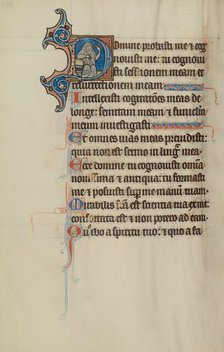 Domine probasti me et cog
nouisti me: tu cognouisti
sessionem meam et
resurrectionem meam.
Intellexisti cogitationes meas de
longe: semitam meam et funiculum
meum inuestigasti.
Et omnes uias meas preuidisti:
quia non est sermo in lingua mea.
Ecce domine tu cognouisti omnia
nouissima et antiqua: tu formasti
me et posuisti super me manum tuam.
Mirabilis facta est scientia tua ex me:
confortata est et non potero ad eam.
Quo ibo a spiritu tuo: et quo a fa